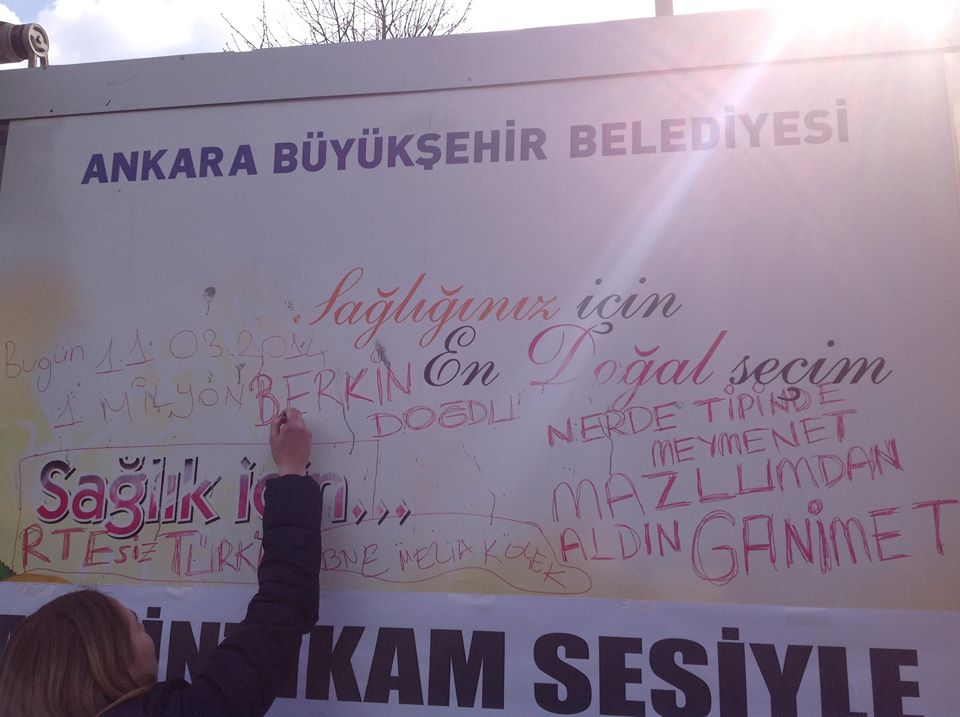 ANKARA BÜYÜKŞEHİR BELEDİYESİ
Sağlığınız için
En Doğal seçim
Bugün 11.03.2014
1 MİLYON BERKİN
DOĞDU
NERDE TİPİNDE
MEYMENET
MAZLUMDAN
ALDIN GANİMET
Sağlık için...
RTEsiz TÜRK
İBNE MELİA KÖÇEK
İNTİKAM SESİYLE